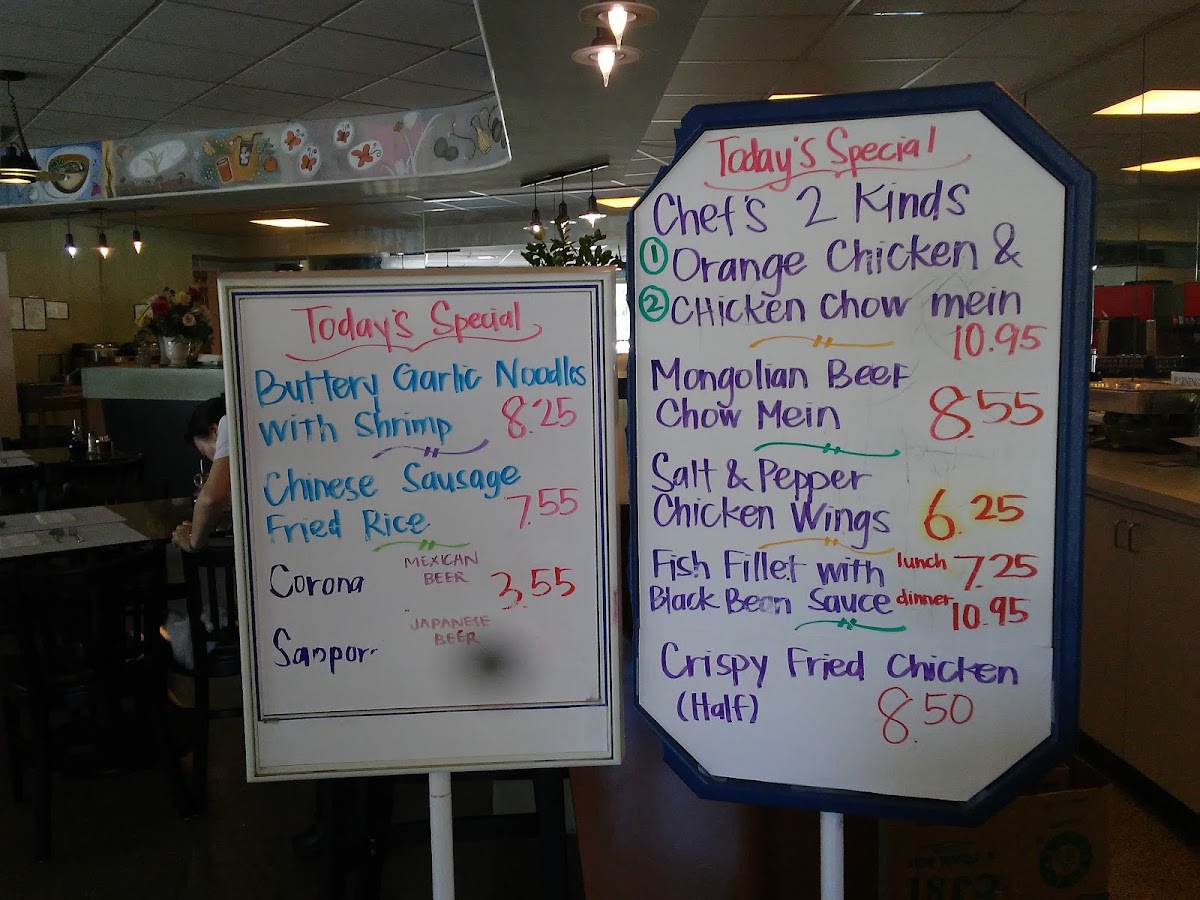 Today's Special
Buttery Garlic Noodles
with Shrimp 8.25
Chinese Sausage
Fried Rice 7.55
Corona MEXICAN BEER 3.55
JAPANESE BEER
Today's Special
Chef's 2 Kinds
1 Orange Chicken &
2 CHicken Chow mein
10.95
Mongolian Beef
Chow Mein 8.55
Salt & Pepper
Chicken Wings 6.25
Fish Fillet with lunch 7.25
Black Bean Sauce dinner 10.95
Crispy Fried Chicken
(Half) 8.50